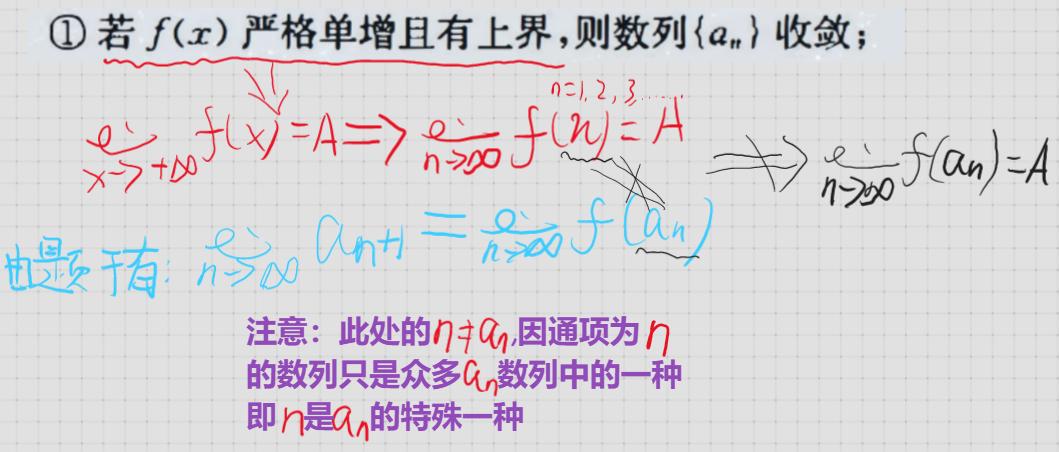 ① 若 f(x) 严格单增且有上界,则数列{aₙ} 收敛;
n=1, 2, 3, ......
lim x→+∞ f(x)=A ⇒ lim n→∞ f(n)=A ⇏ lim n→∞ f(aₙ)=A
由题干有: lim n→∞ aₙ₊₁ = lim n→∞ f(aₙ)
注意：此处的n≠aₙ,因通项为n
的数列只是众多aₙ数列中的一种
即n是aₙ的特殊一种